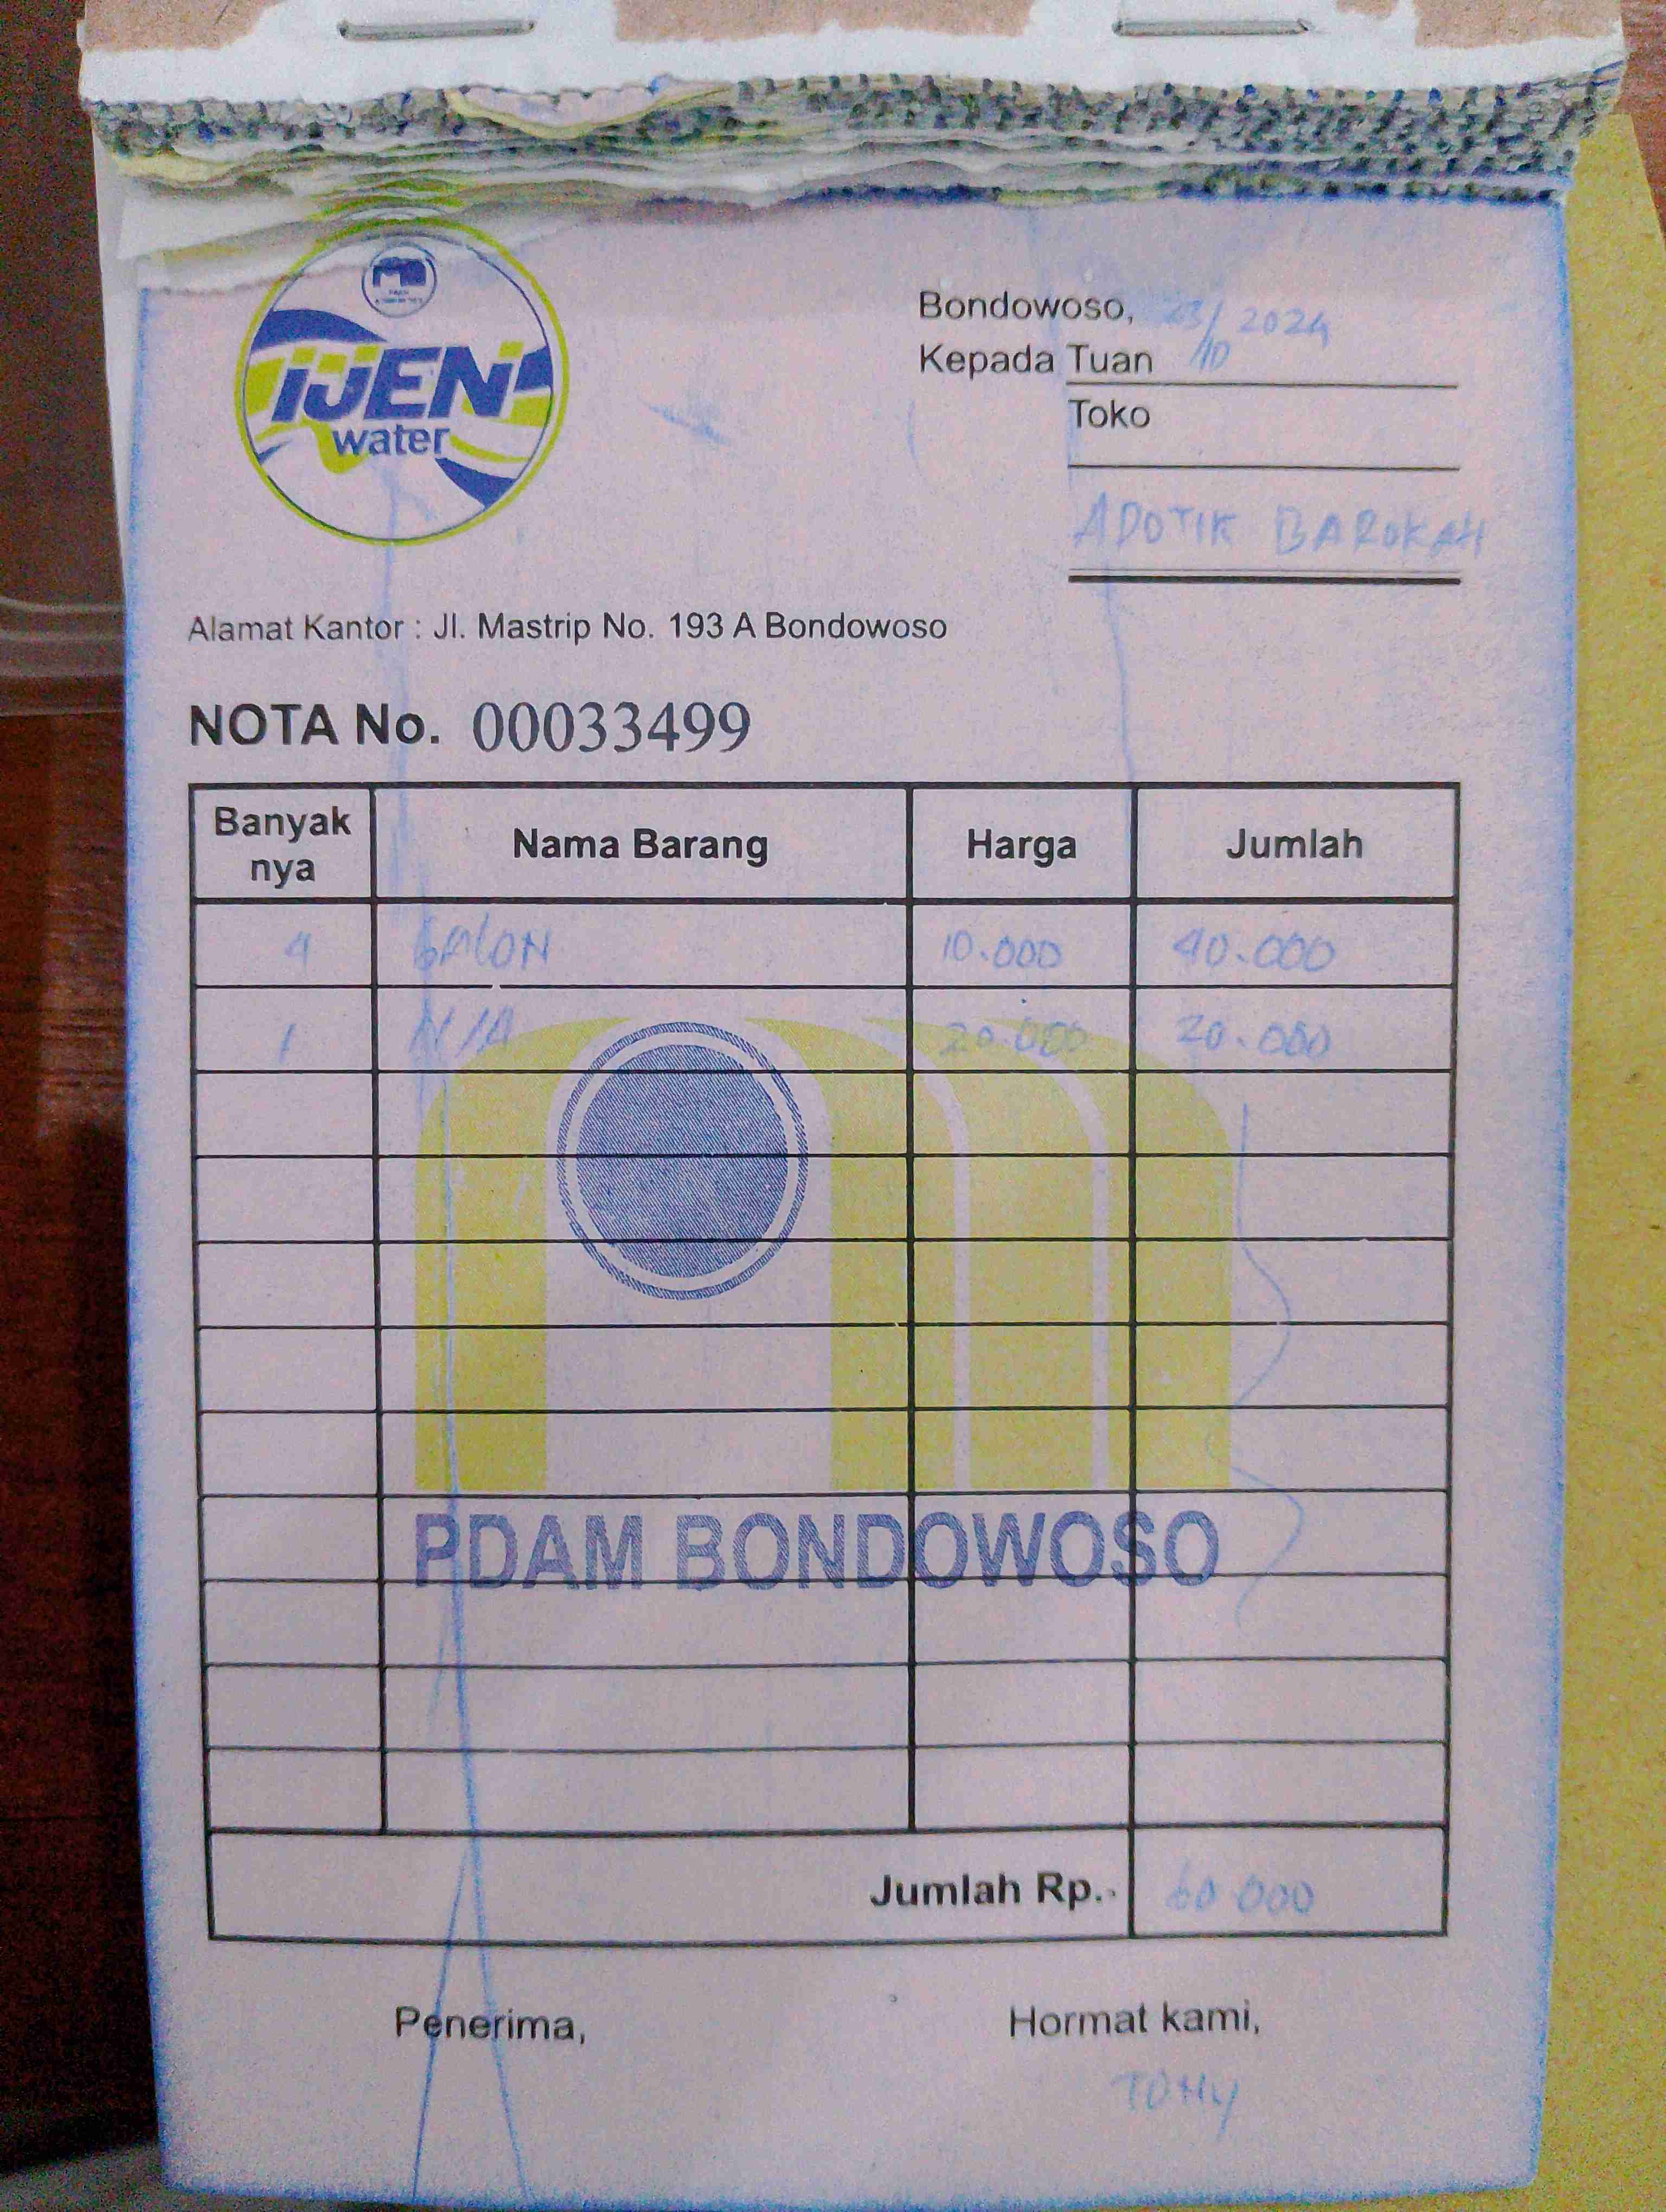 IJEN
water
Bondowoso, 23/10 2024
Kepada Tuan
Toko
APOTIK BAROKAH
Alamat Kantor : Jl. Mastrip No. 193 A Bondowoso
NOTA No. 00033499
Banyak nya Nama Barang Harga Jumlah
4 GALON 10.000 40.000
1 N/A 20.000 20.000
PDAM BONDOWOSO
Jumlah Rp.- 60 000
Penerima, Hormat kami,
TOMY